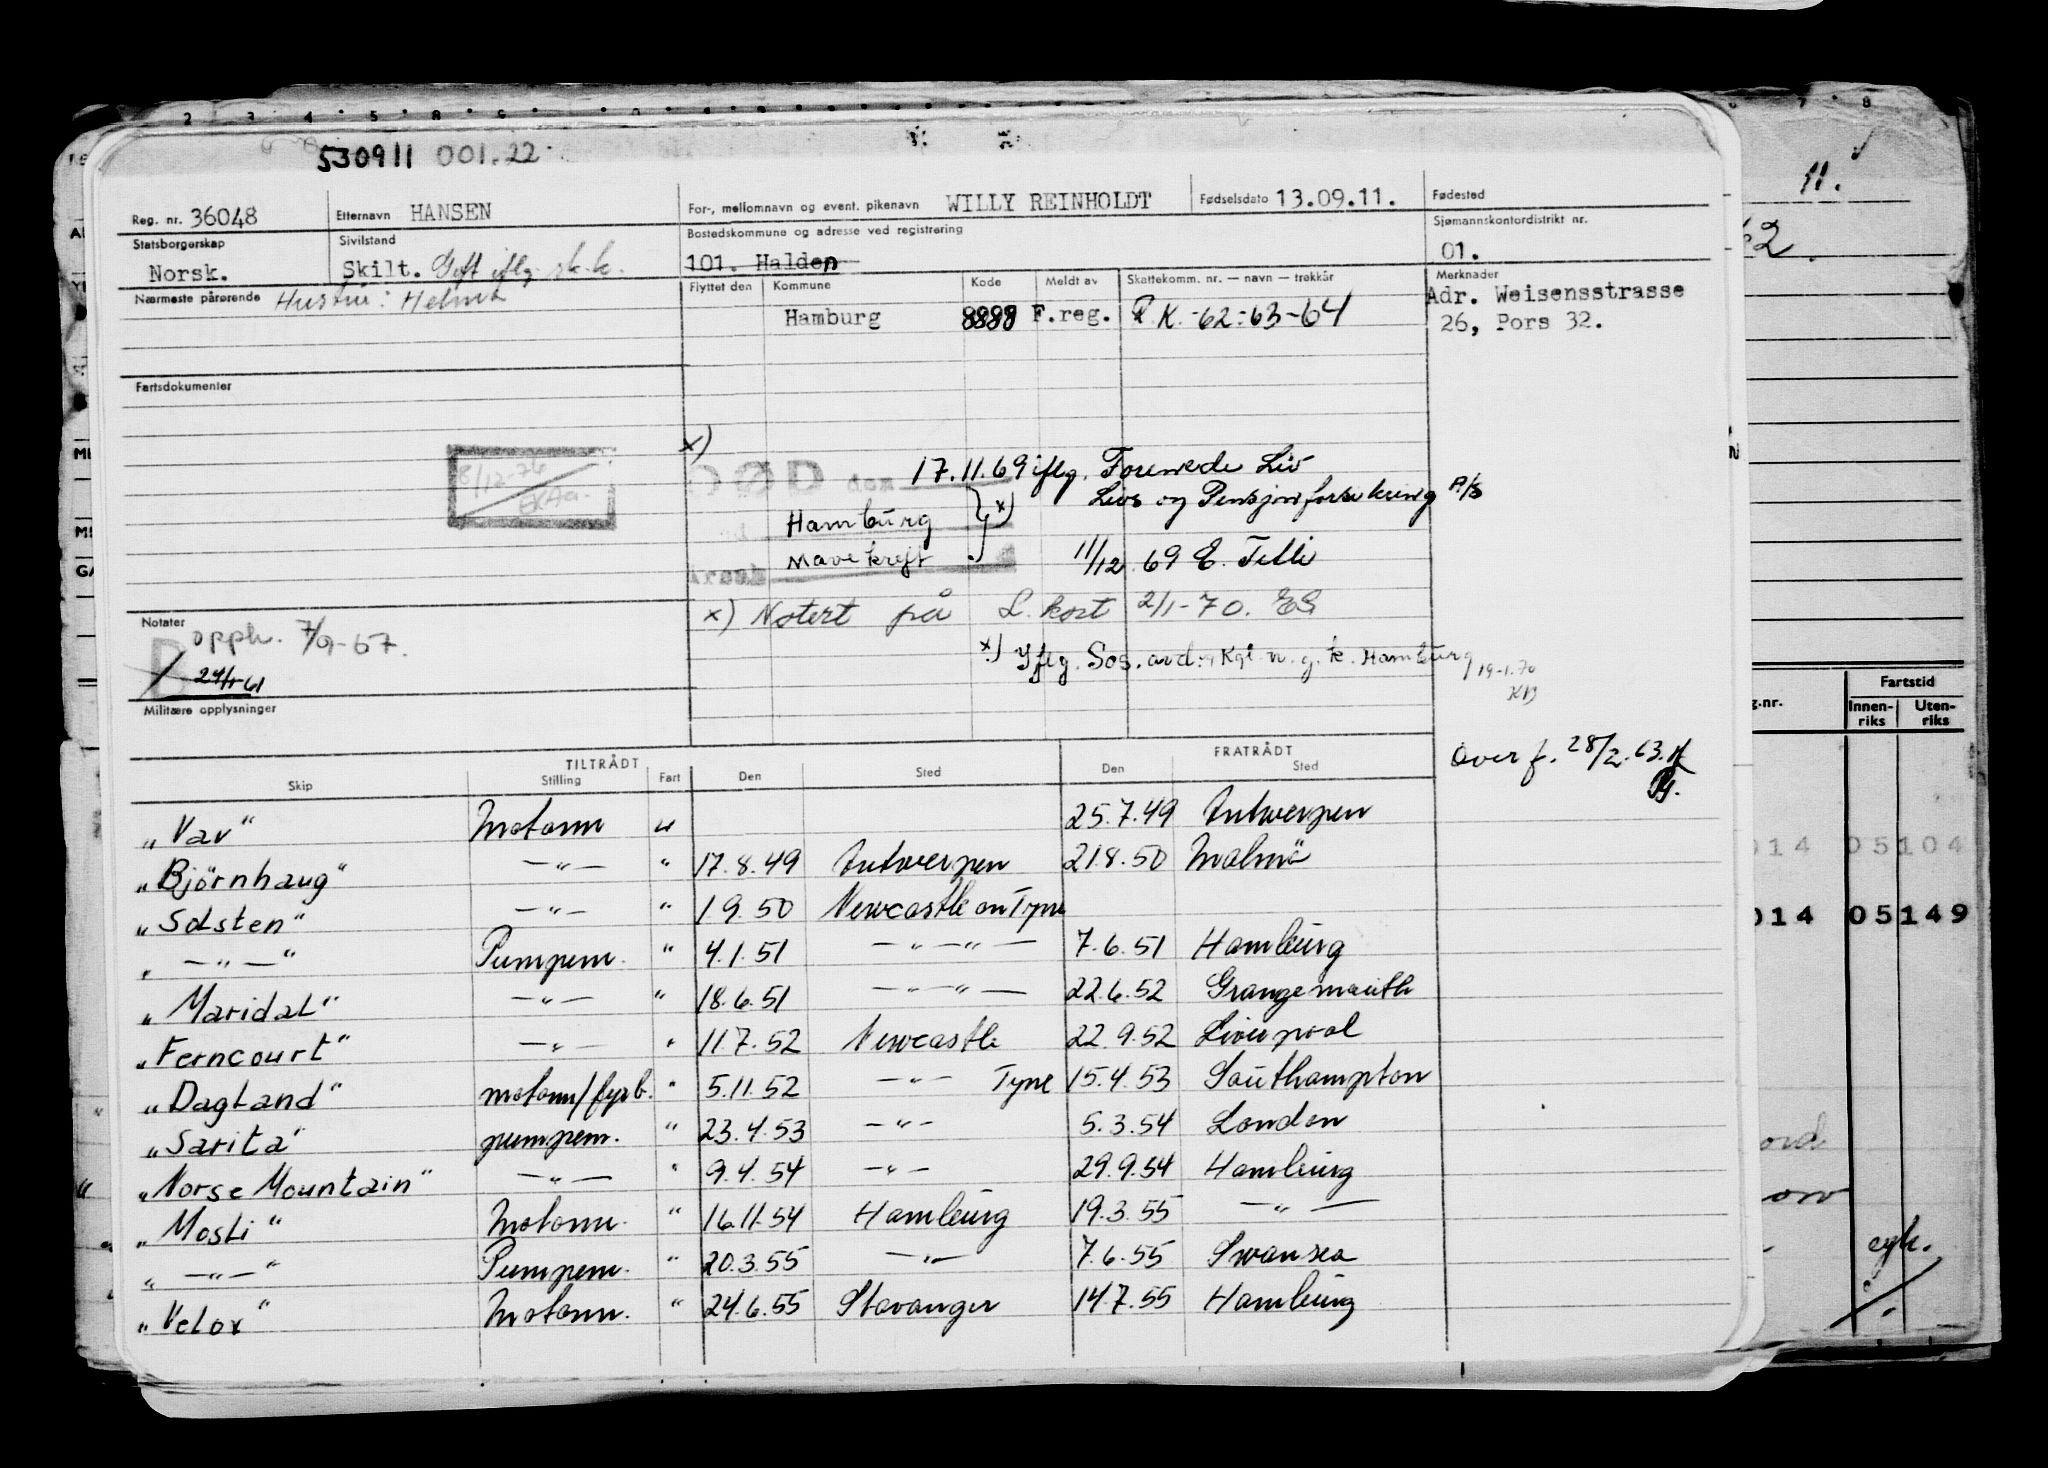 530911 001.22
Reg. nr. 36048 Etternavn HANSEN For-, mellomnavn og event. pikenavn WILLY REINHOLDT Fødselsdato 13.09.11. Fødested
Statsborgerskap Norsk. Sivilstand Skilt. Gift iflg. sk.k. Bostedskommune og adresse ved registrering 101. Halden Sjømannskontordistrikt nr. 01.
Nærmeste pårørende Hustru: Helma Flyttet den Kommune Kode Meldt av Skattekomm. nr. — navn — trekkår Merknader
Hamburg 8888 F.reg. P.K. -62-63-64 Adr. Weisensstrasse
26, Pors 32.
Fartsdokumenter
x)
8/12-76
DØD den 17.11.69 iflg. Forenede Liv
Livs og Pensjonsforsikring A/S
Hamburg } x)
Mavekreft 11/12 69 E.
x) Notert på L. kort 2/1-70. ES
x) Iflg. Sos.avd. Kgl. n. g. k. Hamburg 19-1.70
KB
Notater
opph. 7/9-67.
D
Militære opplysninger
Overf. 28/2.63.
TILTRÅDT FRATRÅDT
Skip Stilling Fart Den Sted Den Sted
„Vav“ Motorm u 25.7.49 Antwerpen
„Bjørnhaug“ —„— “ 17.8.49 Antwerpen 21.8.50 Malmö
„Solsten“ —„— “ 1 9.50 Newcastle on Tyne
„—„—“ Pumpem. “ 4.1.51 —„—„— 7.6.51 Hamburg
„Maridal“ —„— “ 18.6.51 —„—„— 22.6.52 Grangemouth
„Ferncourt“ —„— “ 11.7.52 Newcastle 22.9.52 Liverpool
„Dagland“ motorm/fyrb. “ 5.11.52 —„— Tyne 15.4.53 Southampton
„Sarita“ pumpem. “ 23.4.53 —„— 5.3.54 London
„Norse Mountain“ —„— “ 9.4.54 —„— 29.9.54 Hamburg
„Mosli“ Motorm. “ 16.11.54 Hamburg 19.3.55 —„—
„—„—“ Pumpem. “ 20.3.55 —„— 7.6.55 Swansea
„Velox“ Motorm. “ 24.6.55 Stavanger 14.7.55 Hamburg
Fartstid
Innen-riks Uten-riks
014 05104
014 05149